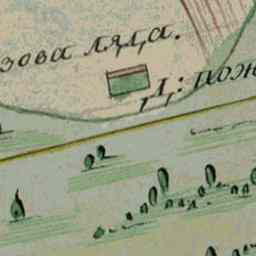 зова ляда.
Д: пож